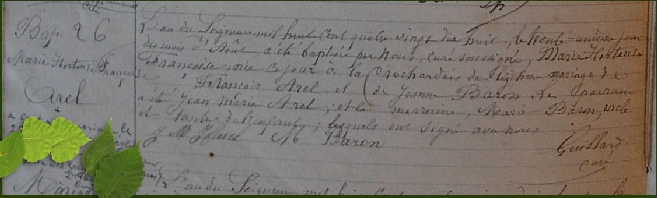 Bap. 26
Marie Hortense Françoise
Orel
L'an du Seigneur mil huit cent quatre vingt dix huit, le trente-unième jour
du mois d'Août, a été baptisée par nous, curé soussigné, Marie Hortense
Françoise, née ce jour à la du mariage de
François Orel et de Jeanne Baron. Le Parrain
a été Jean Marie Orel, et la marraine, Marie Baron, oncle
et tante de l'enfant, lesquels ont signé avec nous
J M Orel M Baron
Guillard
curé
L'an du Seigneur mil